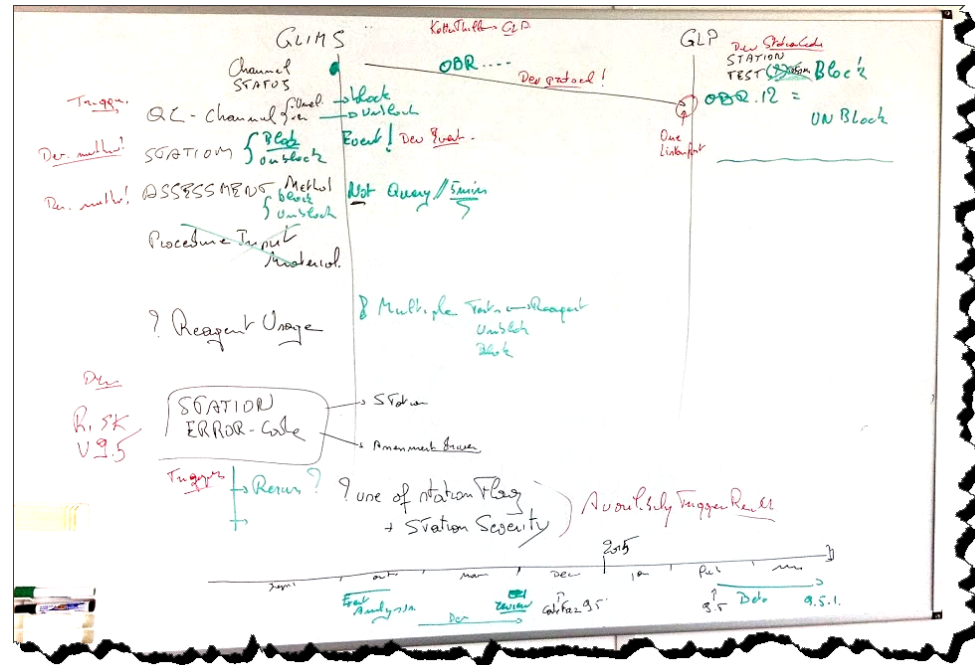 GLIMS
GLP
Channel
STATUS
OBR....
Dev protocol!
Dev StationCode
STATION
TEST
Block
OBR.12 =
UNBlock
One
Trigger
QC - Channel
block
Unblock
Dev. method!
STATION
Block
Unblock
Event! Dev Event.
Dev. method!
ASSESSMENT Method
block
Unblock
Not Query // 5min
Procedure Input
Material.
? Reagent Usage
Multiple Tests Reagent
Unblock
Block
Dev
RISK
V9.5
STATION
ERROR-Code
Station
Trigger
Rerun?
? use of station Flag
+ Station Severity
2015
Sept
Dec
Jan
Event
Analysis
Dev
review
9.5
9.5
Beta
9.5.1.